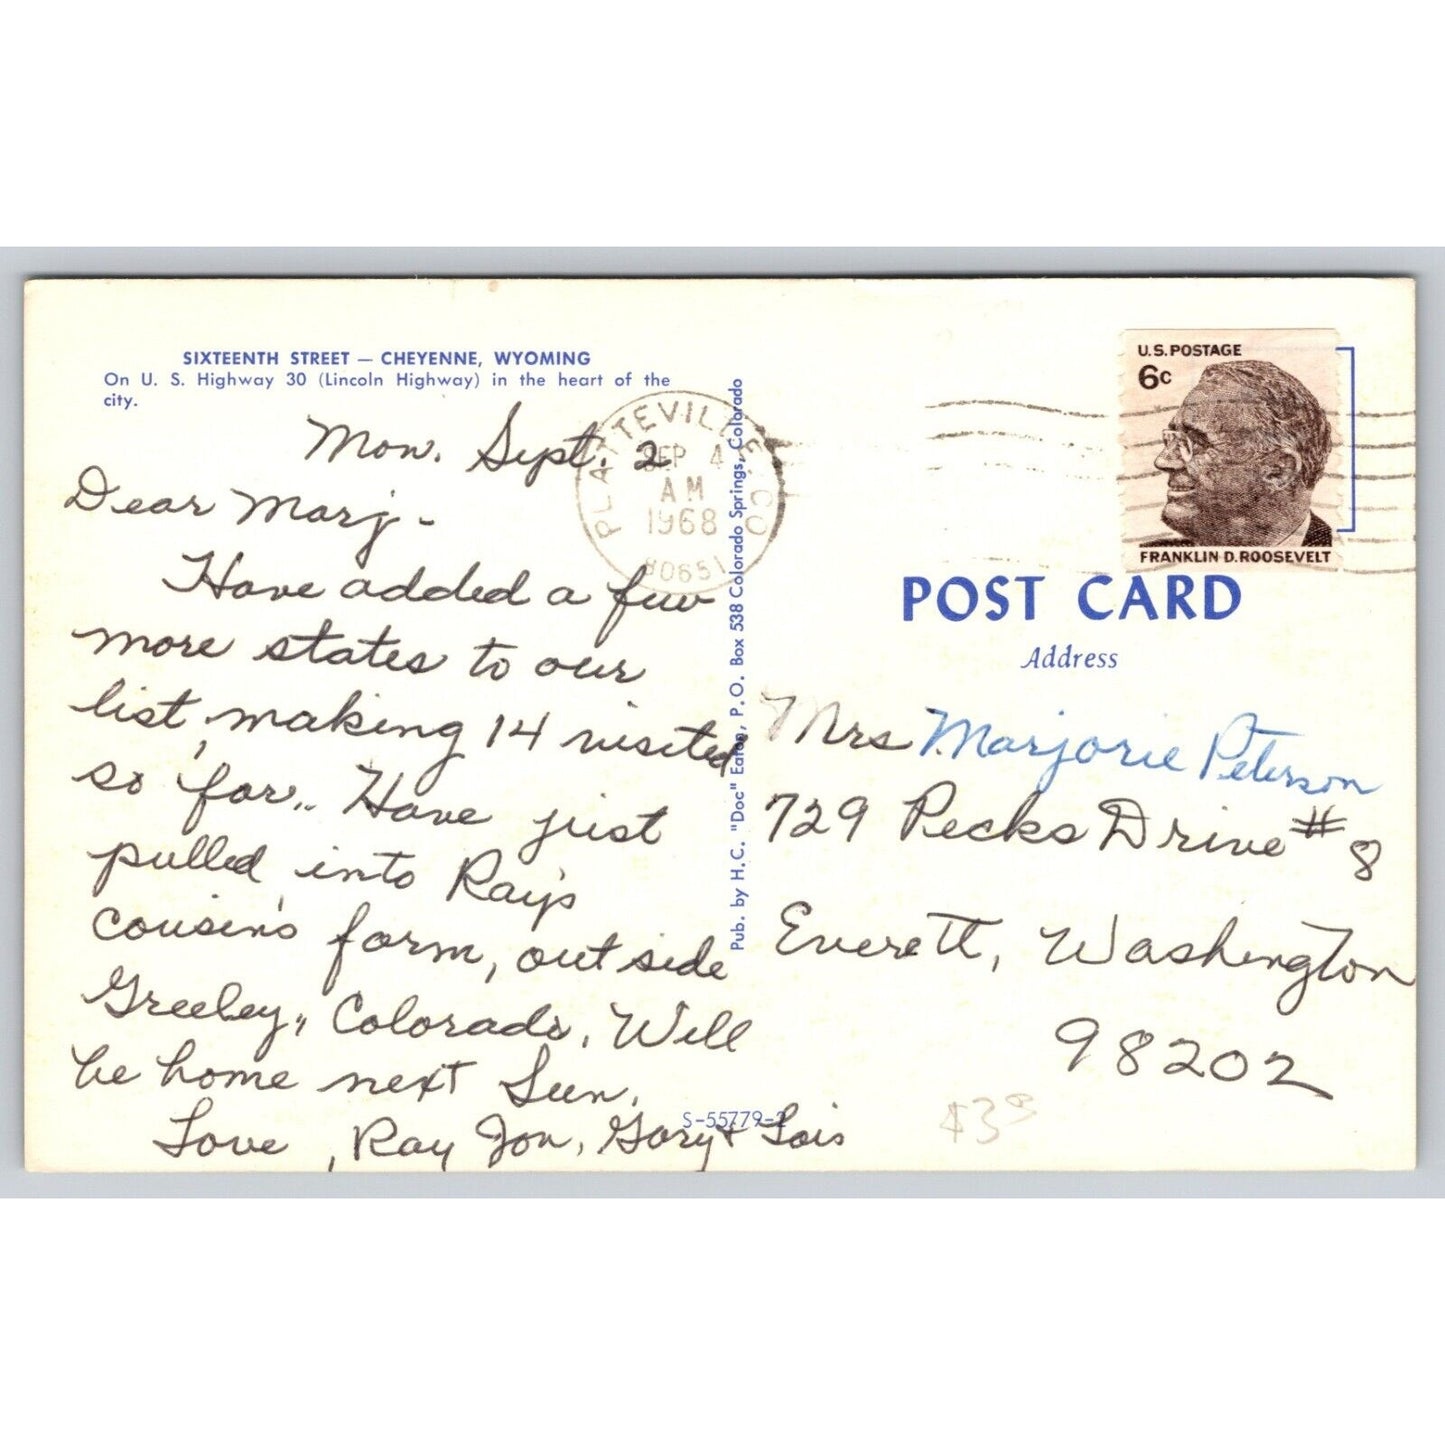 SIXTEENTH STREET — CHEYENNE, WYOMING
On U. S. Highway 30 (Lincoln Highway) in the heart of the
city.
Mon. Sept. 2
Dear Marj -
Have added a few
more states to our
list, making 14 visited
so far.. Have just
pulled into Ray's
cousin's farm, outside
Greeley, Colorado. Will
be home next Sun.
Love, Ray Jon, Gary & Lois
PLATTEVILLE, CO
SEP 4
AM
1968
80651
Pub. by H.C. "Doc" Eaton, P.O. Box 538 Colorado Springs, Colorado
S-55779-2
U.S. POSTAGE
6c
FRANKLIN D. ROOSEVELT
POST CARD
Address
Mrs Marjorie Peterson
729 Pecks Drive #8
Everett, Washington
98202
$3